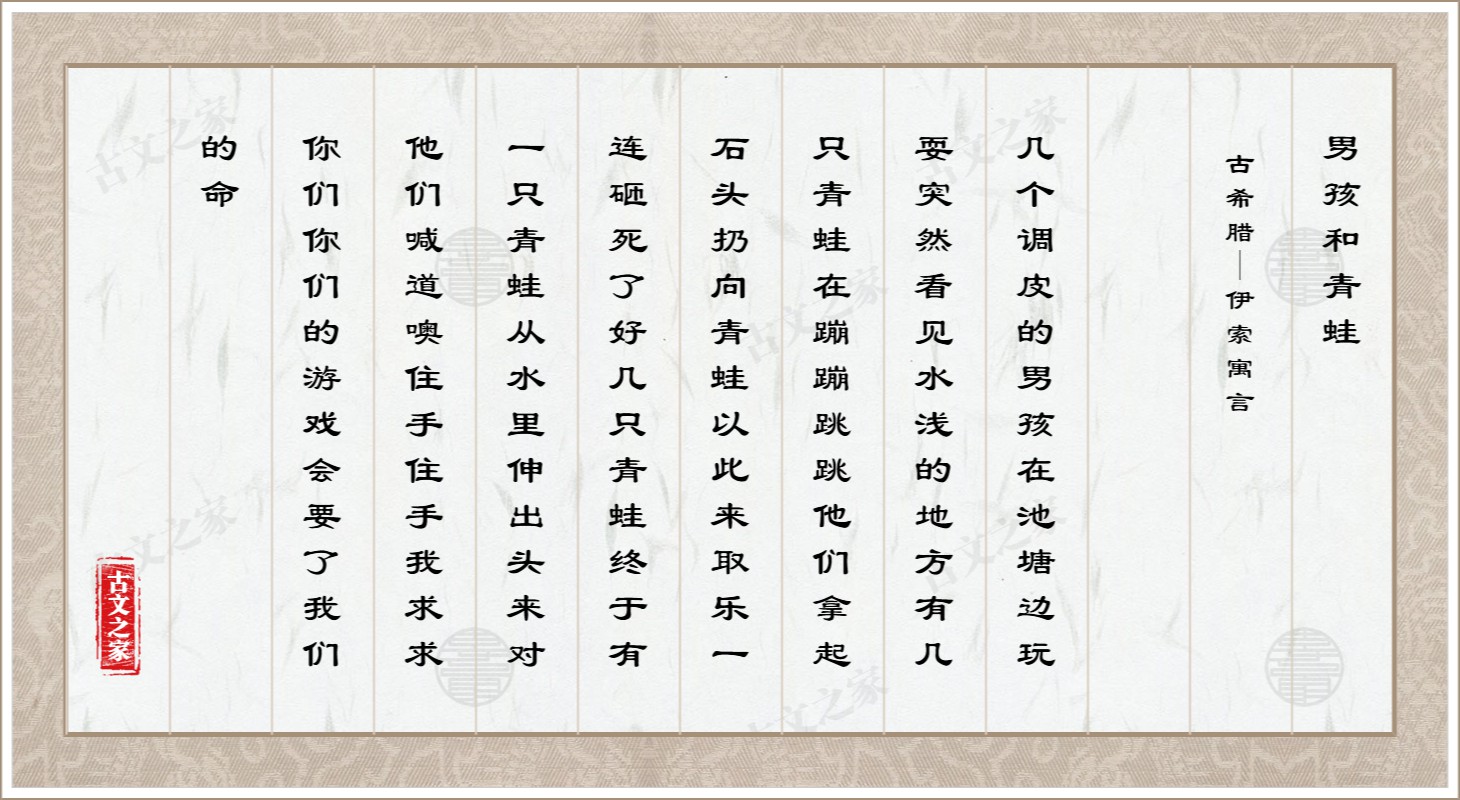 男孩和青蛙
古希腊—伊索寓言
几个调皮的男孩在池塘边玩
耍突然看见水浅的地方有几
只青蛙在蹦蹦跳跳他们拿起
石头扔向青蛙以此来取乐一
连砸死了好几只青蛙终于有
一只青蛙从水里伸出头来对
他们喊道噢住手住手我求求
你们你们的游戏会要了我们
的命
古文之家